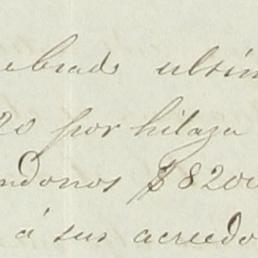 ebrado ultim
20 por hilaza
ndonos $8200
á sus acreedo